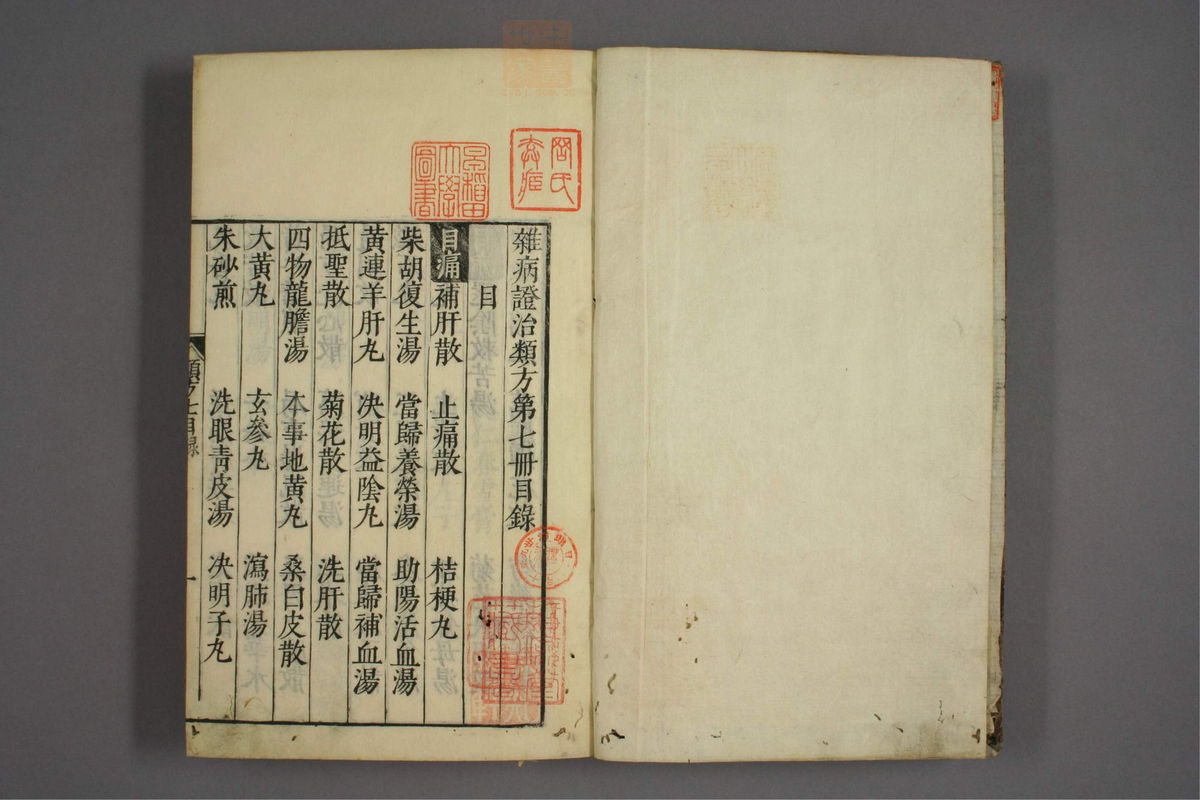 雜病證治類方第七冊目錄
目
目痛 補肝散 止痛散 桔梗丸
柴胡復生湯 當歸養榮湯 助陽活血湯
黃連羊肝丸 决明益陰丸 當歸補血湯
抵聖散 菊花散 洗肝散
四物龍膽湯 本事地黃丸 桑白皮散
大黃丸 玄參丸 瀉肺湯
朱砂煎 洗眼靑皮湯 决明子丸
類方七目錄
一
早稲田大學圖書